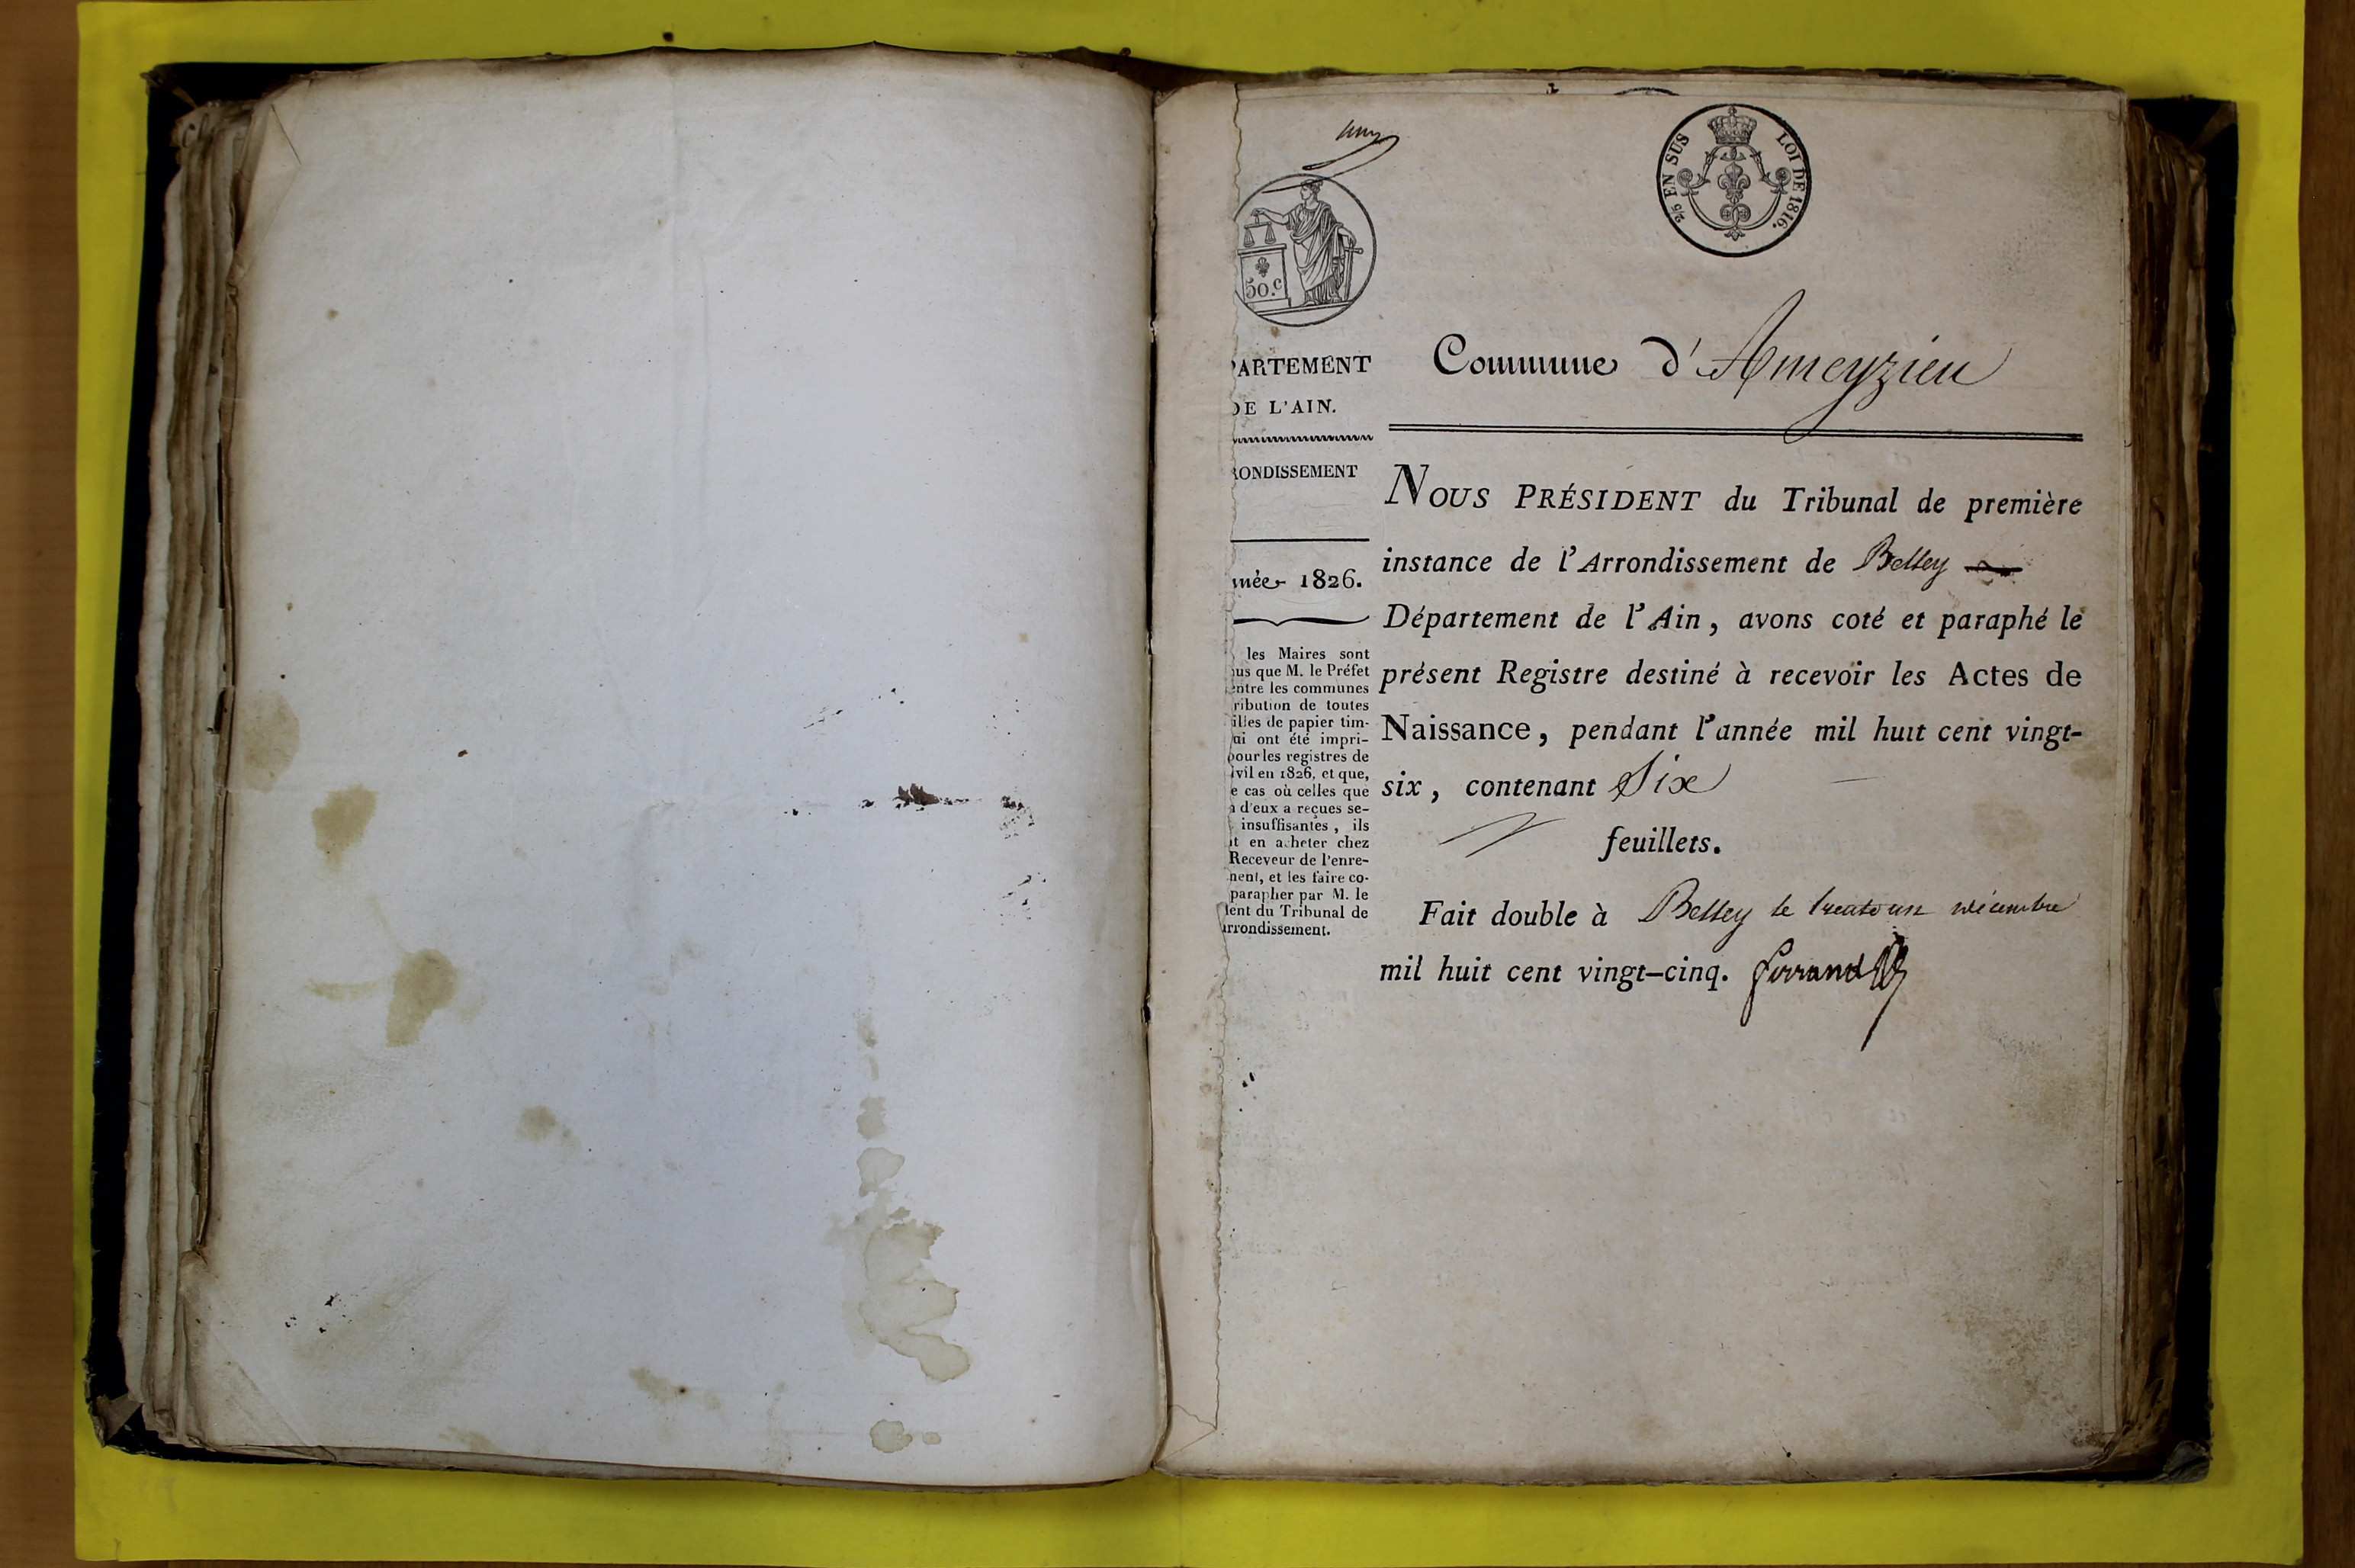 25 EN SUS LOI DE 1816.
50.c
PARTEMENT
DE L'AIN.
RONDISSEMENT
nnée 1826.
les Maires sont
us que M. le Préfet
entre les communes
ribution de toutes
illes de papier tim-
ui ont été impri-
pour les registres de
ivil en 1826, et que,
e cas où celles que
n d'eux a reçues se-
insuffisantes, ils
nt en acheter chez
Receveur de l'enre-
nent, et les faire co-
parapher par M. le
dent du Tribunal de
arrondissement.
Commune d'Ameyzieu
NOUS PRÉSIDENT du Tribunal de première
instance de l'Arrondissement de Belley
Département de l'Ain, avons coté et paraphé le
présent Registre destiné à recevoir les Actes de
Naissance, pendant l'année mil huit cent vingt-
six, contenant Six
feuillets.
Fait double à Belley le trente un décembre
mil huit cent vingt-cinq. Ferrand